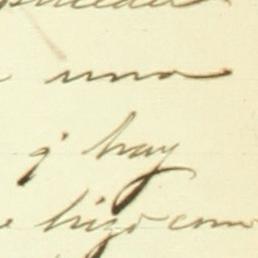 una
q' hay
hizo com